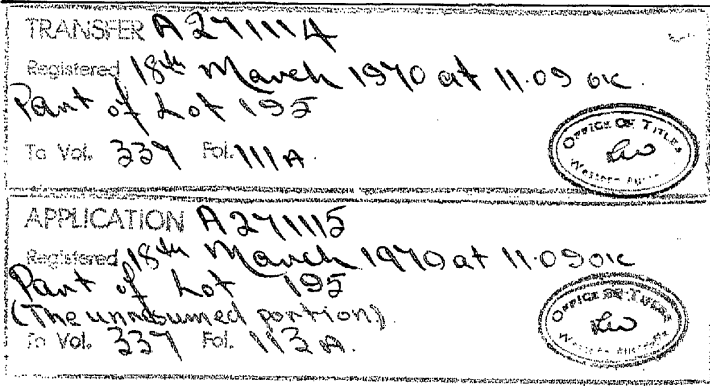 TRANSFER A271114
Registered 18th March 1970 at 11.09 oc.
Part of Lot 195
To Vol. 337 Fol. 111A.
OFFICE OF TITLES
Western Austr
APPLICATION A271115
Registered 18th March 1970 at 11.09 oc
Part of Lot 195
(The unresumed portion).
To Vol. 337 Fol. 113A.
OFFICE OF TITLES
Western Australia